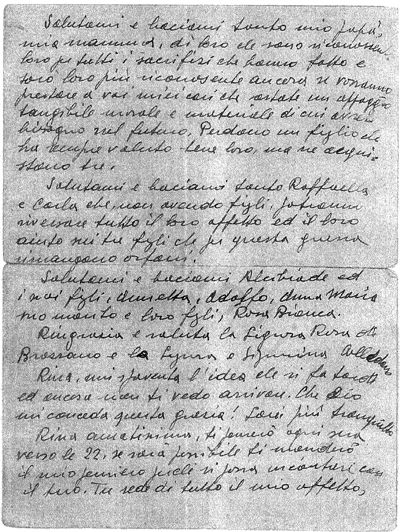 Salutami e baciami tanto mio papà,
mia mamma, di loro che sono riconoscente
loro per tutti i sacrifizi che hanno fatto e
sarò loro più riconoscente ancora se vorranno
prestare a voi miei cari che restate un appoggio
tangibile morale e materiale di cui avrete
bisogno nel futuro. Perdono un figlio che
ha sempre voluto bene loro, ma ne acqui-
stano tre.
Salutami e baciami tanto Raffaella
e Carla che, non avendo figli, potranno
riversare tutto il loro affetto ed il loro
aiuto sui tre figli che per questa guerra
rimangono orfani.
Salutami e baciami Alcibiade ed
i suoi figli, Annetta, Adolfo, Anna Maria
suo marito e loro figli, Rosa Bianca.
Ringrazia e saluta la Signora Rosa
e la Signora e Signorina
Rina, mi spaventa l'idea che si fa tardi
ed ancora non ti vedo arrivare. Che Dio
mi conceda questa grazia! Sarei più tranquillo
Rina amatissima, ti penserò ogni sera
verso le 22, se sarà possibile ti manderò
il mio pensiero perché si possa incontrare con
il tuo. Tu sede di tutto il mio affetto,